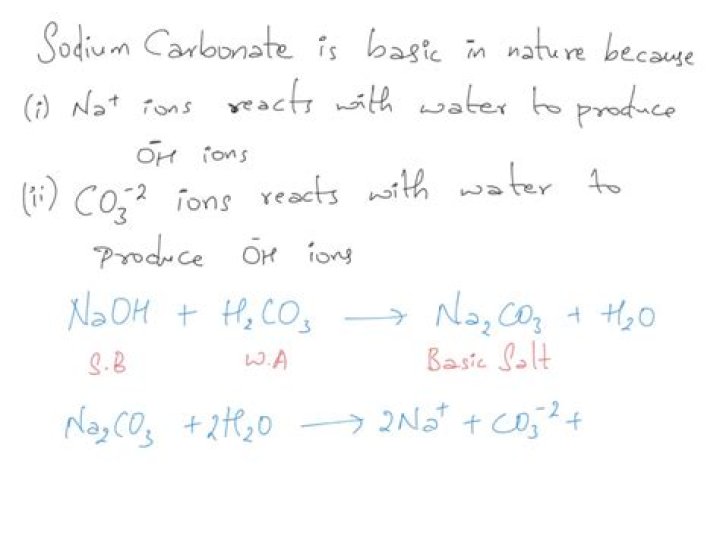 Sodium Carbonate is basic in nature because
(i) Na⁺ ions reacts with water to produce
O̅H ions
(ii) CO₃⁻² ions reacts with water to
produce O̅H ions
NaOH + H₂CO₃ → Na₂CO₃ + H₂O
S.B W.A Basic Salt
Na₂CO₃ + 2H₂O → 2Na⁺ + CO₃⁻² +